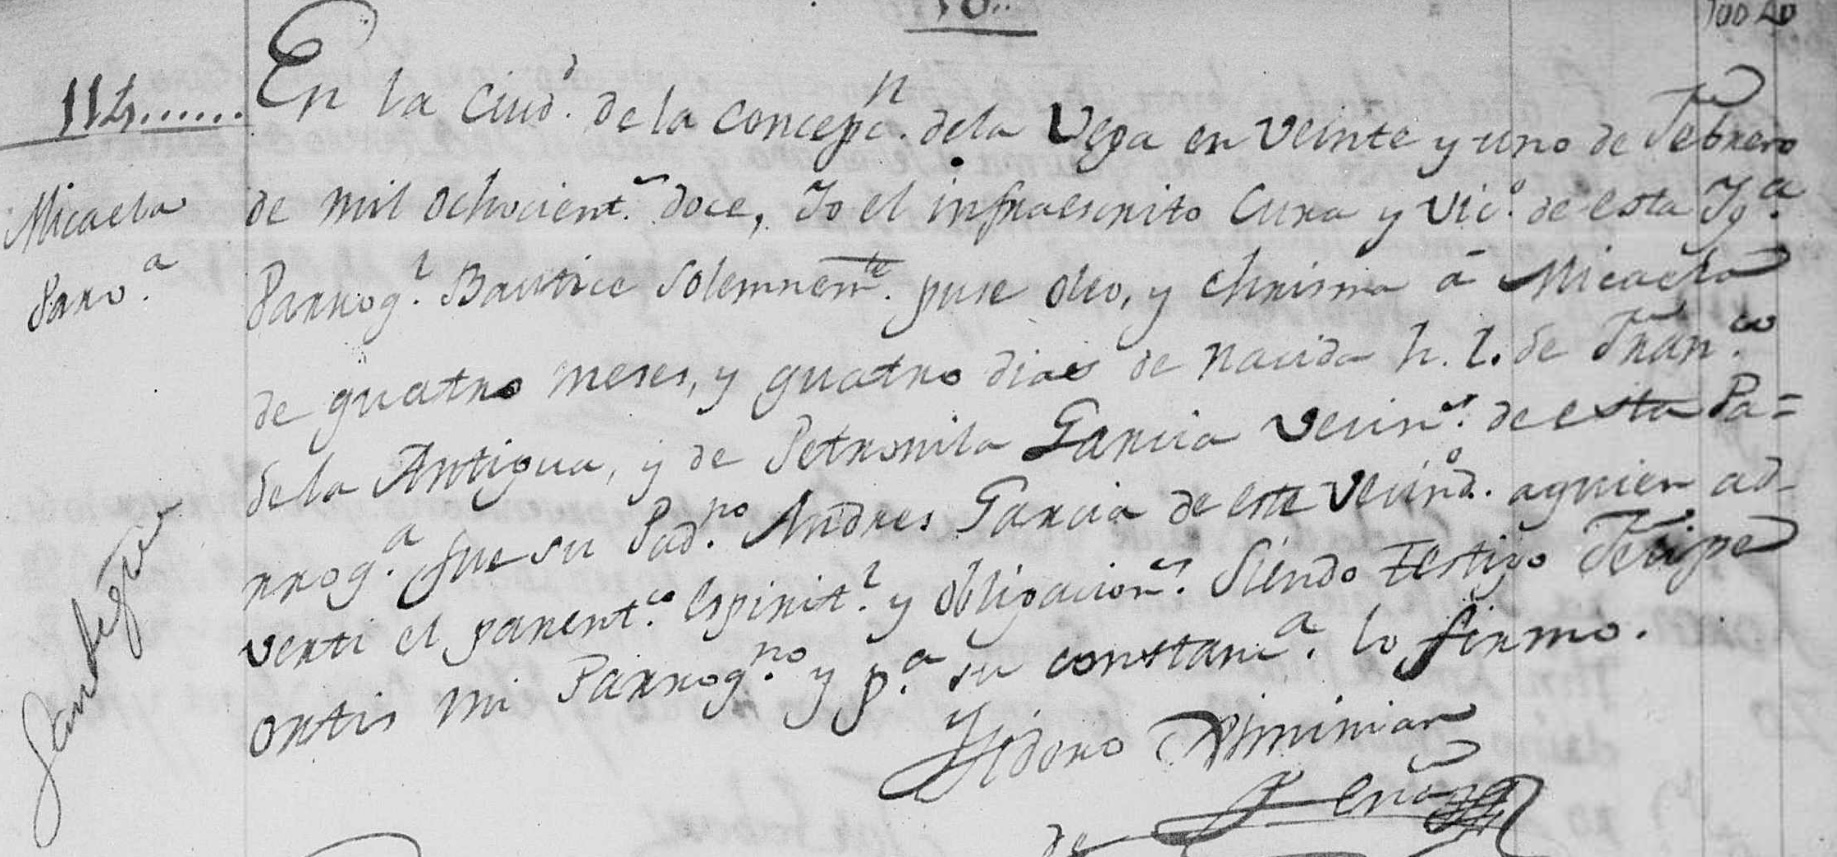 112......
Micaela
Parro.a
En la Ciud.d de la Concepc.n dela Vega en veinte y uno de Febrero
de mil ochocient.s doce, Yo el infraescrito Cura y Vic.o de esta Yg.a
Parrog.l Bautice solemnem.te puse oleo, y chrisma á Micaela
de quatro meses, y quatro dias de nacida h. l. de Fran.co
dela Antigua, y de Petronila Garcia vecin.s de esta Pa=
rrog.a fue su Pad.no Andres Garcia de este vecind.o aquien ad-
verti el parent.co espirit.l y obligacion.s siendo testigo Felipe
Ortis mi Parrog.no y p.a su constanc.a lo firmo.
Ysidoro Ximinian
Peña